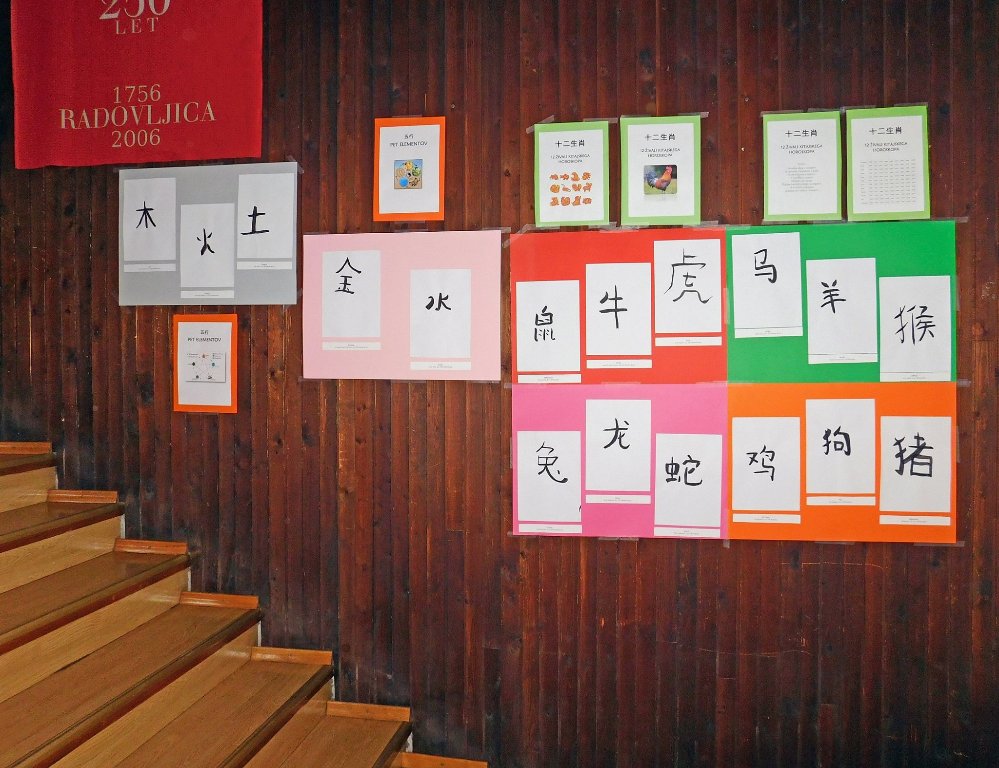 250
LET
1756
RADOVLJICA
2006
木
火
土
五行
PET ELEMENTOV
五行
PET ELEMENTOV
金
水
十二生肖
12 ŽIVALI KITAJSKEGA
HOROSKOPA
十二生肖
12 ŽIVALI KITAJSKEGA
HOROSKOPA
十二生肖
12 ŽIVALI KITAJSKEGA
HOROSKOPA
十二生肖
12 ŽIVALI KITAJSKEGA
HOROSKOPA
鼠
牛
虎
马
羊
猴
兔
龙
蛇
鸡
狗
猪